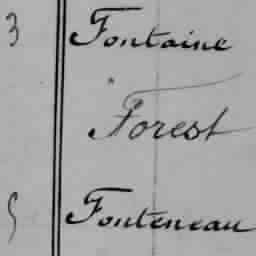 3 Fontaine
Forest
5 Fonteneau